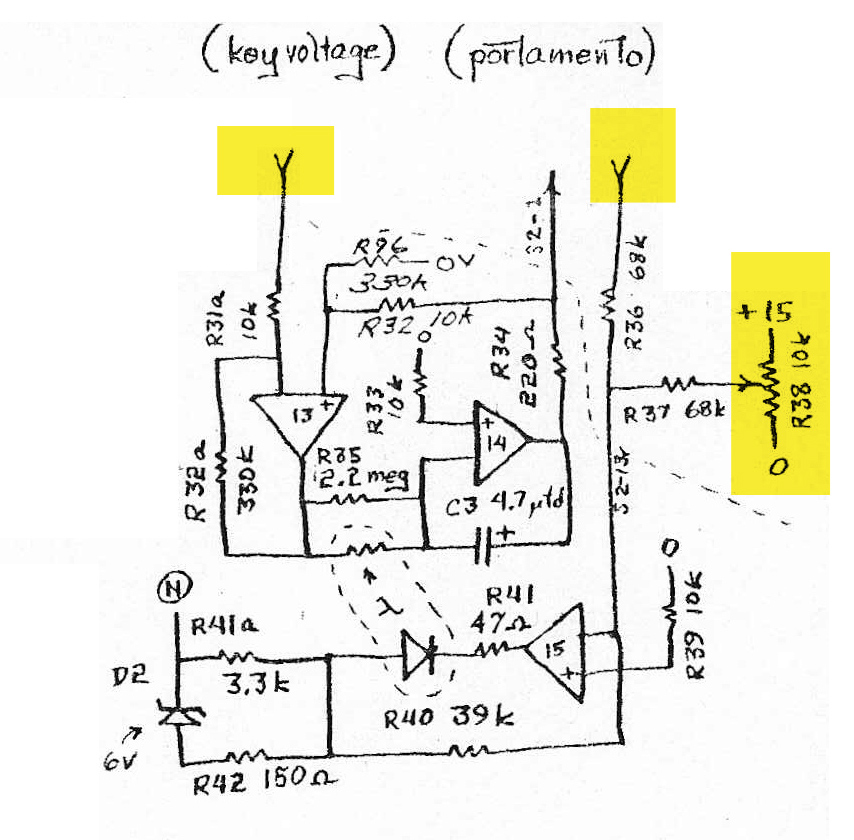 (key voltage) (portamento)
R96
0V
330k
S2-1
R36 68k
+ 15
R31a
10k
R32 10k
0
R34
220Ω
R38 10k
R33
10k
R37 68k
+
13
+
14
0
R35
2.2 meg
R32a
330k
C3 4.7 µfd
+
S2-13
0
N
λ
R41
47Ω
R39 10k
R41a
3.3k
15
+
D2
R40 39k
6V
R42 150Ω